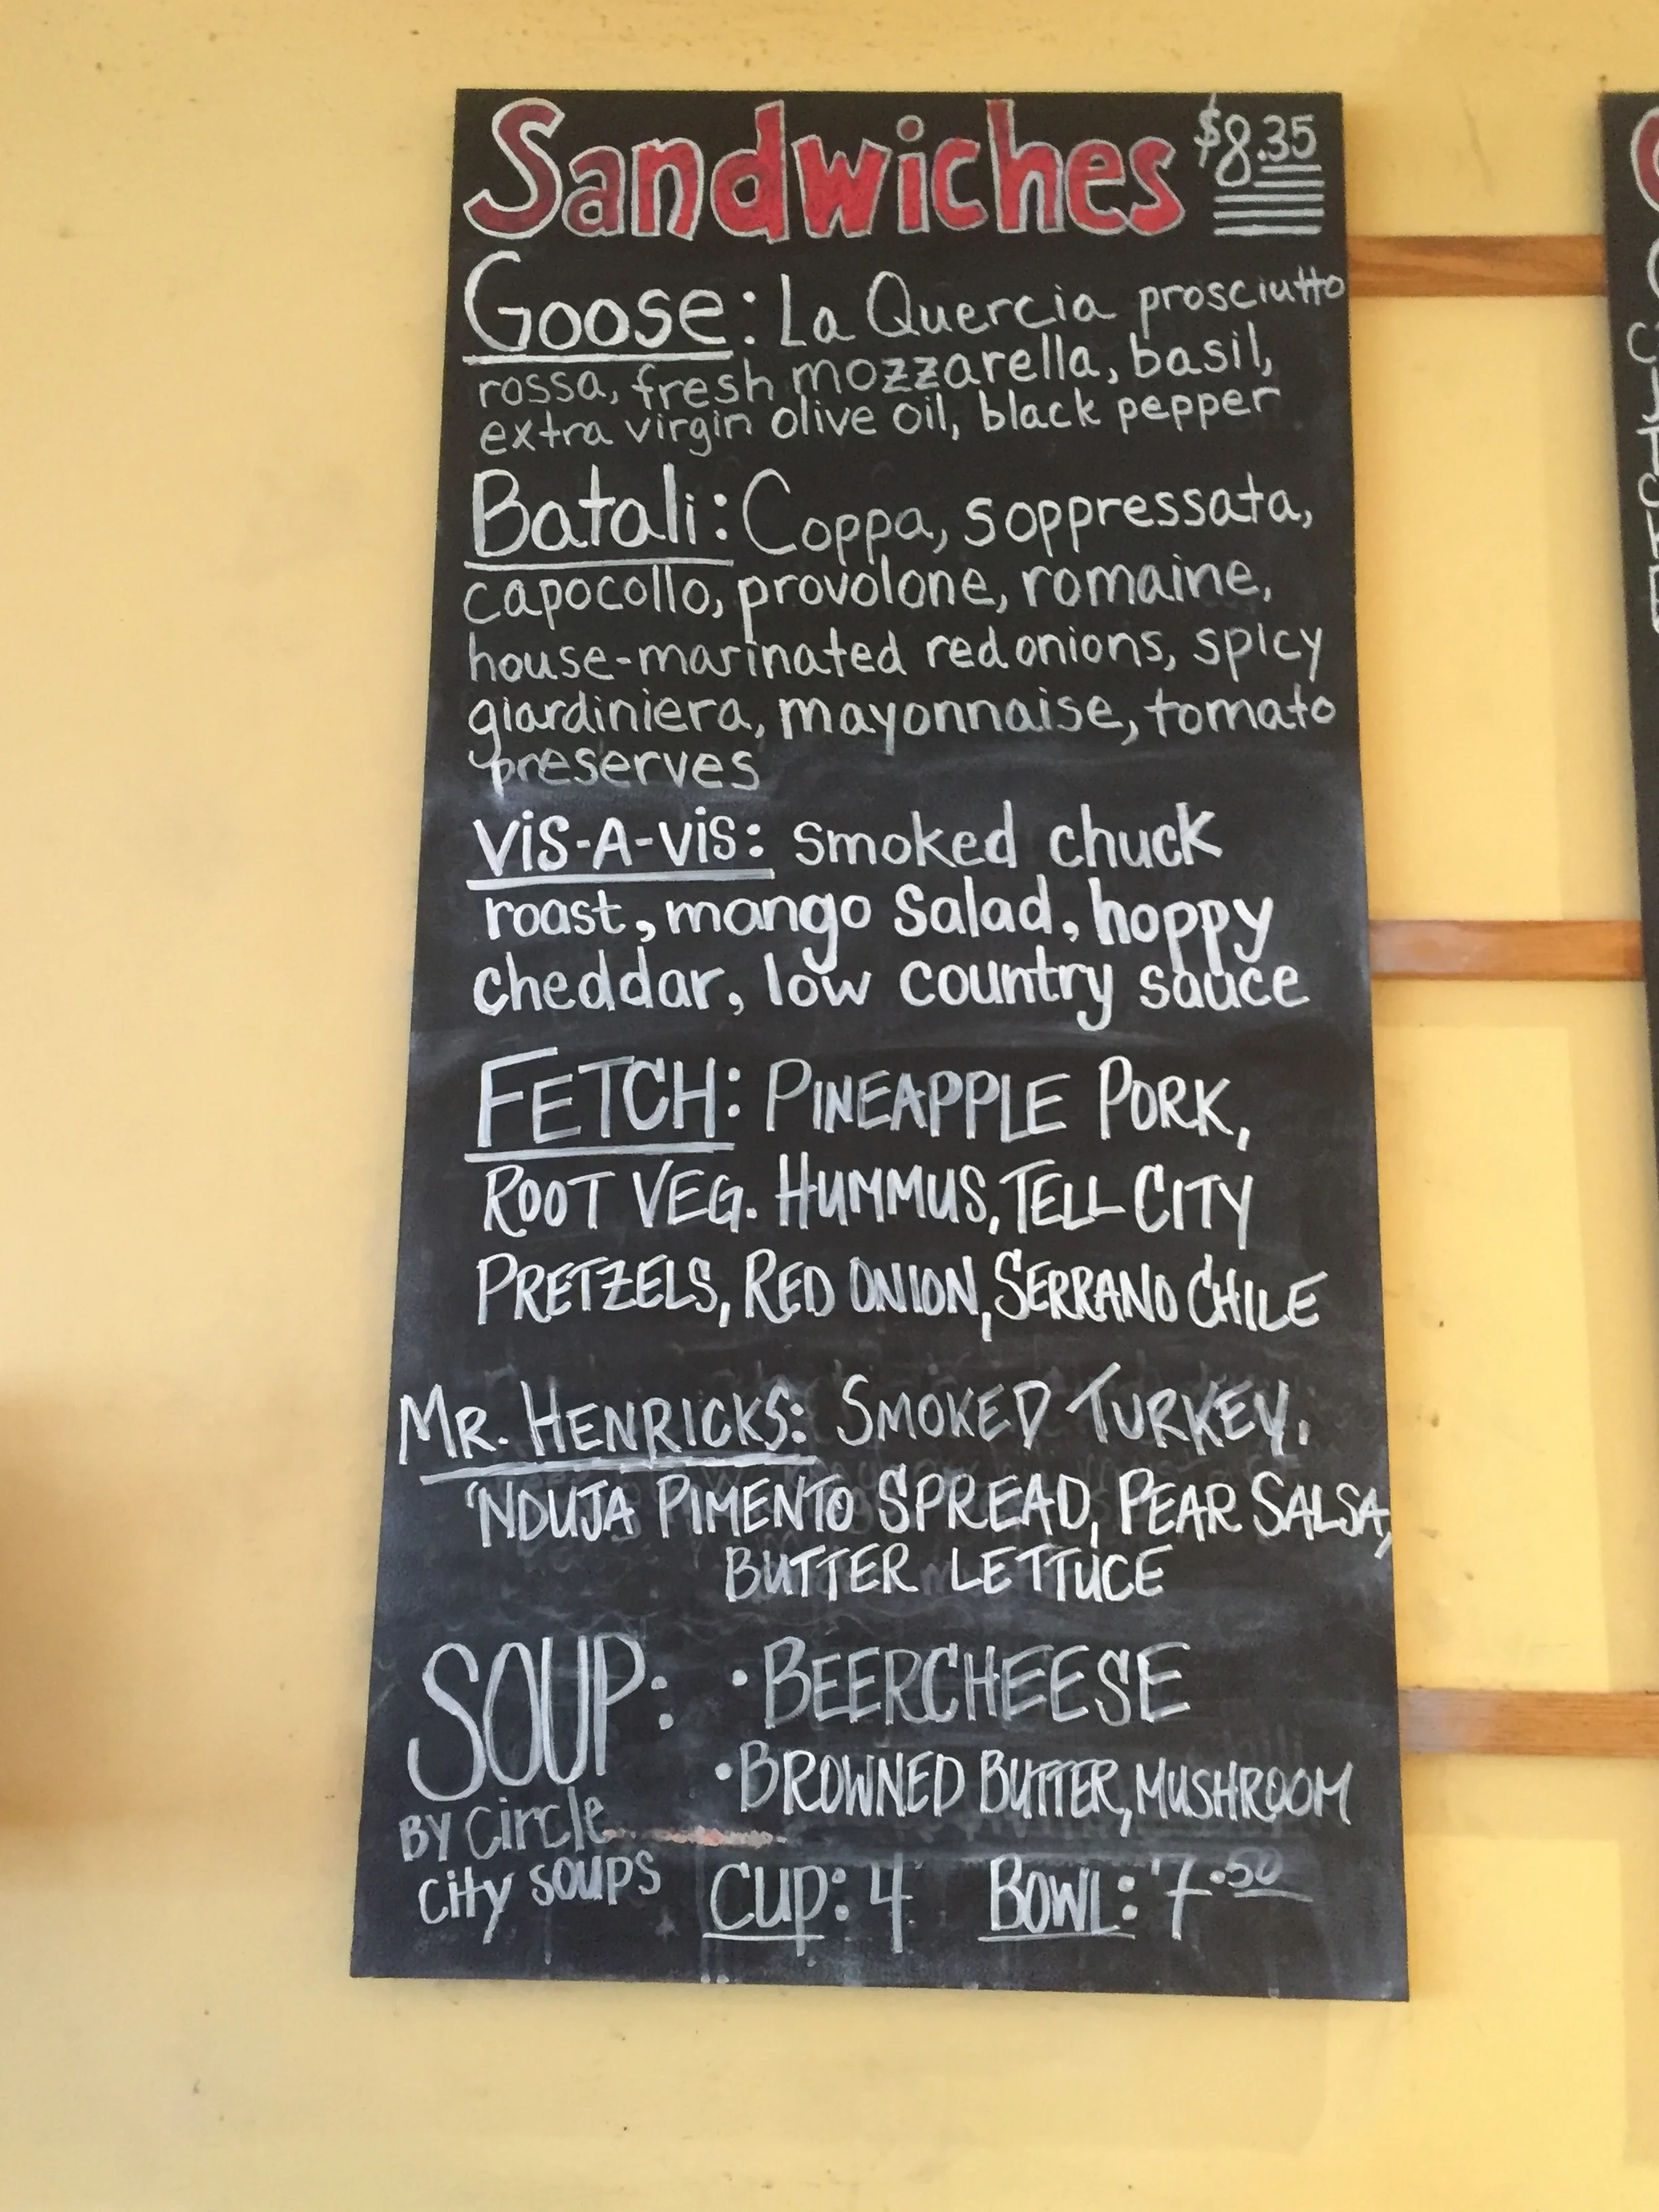 Sandwiches $8.35
Goose: La Quercia prosciutto
rossa, fresh mozzarella, basil,
extra virgin olive oil, black pepper
Batali: Coppa, soppressata,
capocollo, provolone, romaine,
house-marinated red onions, spicy
giardiniera, mayonnaise, tomato
preserves
ViS-A-ViS: smoked chuck
roast, mango Salad, hoppy
cheddar, low country sauce
FETCH: PINEAPPLE PORK,
ROOT VEG. HUMMUS, TELL CITY
PRETZELS, RED ONION, SERRANO CHILE
MR. HENRICKS: SMOKED TURKEY,
'NDUJA PIMENTO SPREAD, PEAR SALSA,
BUTTER LETTUCE
SOUP: • BEERCHEESE
• BROWNED BUTTER, MUSHROOM
BY Circle
City SOUPS
CUP: 4 BOWL: 7.50